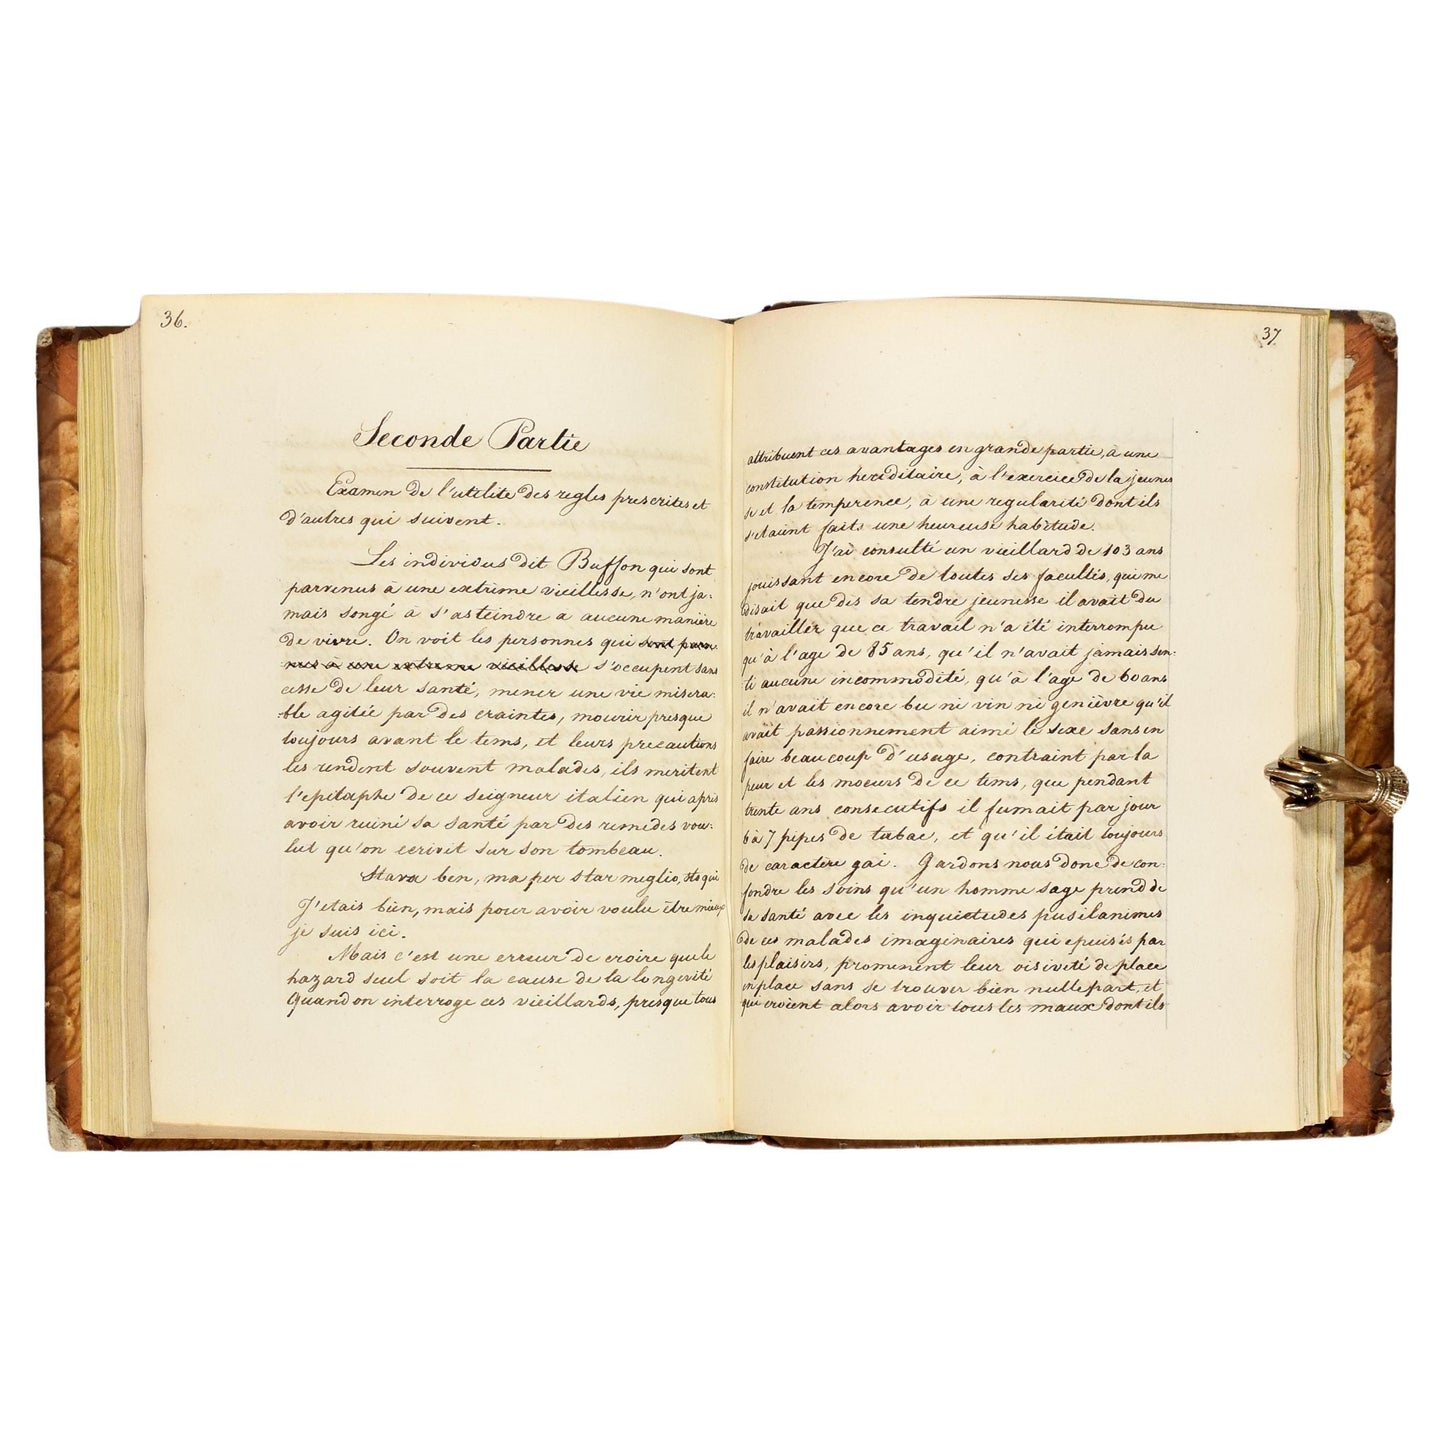 36.
Seconde Partie
Examen de l'utilité des regles prescrites et
d'autres qui suivent.
Les individus dit Buffon qui sont
parvenus à une extrême vieillesse, n'ont ja-
mais songé à s'asteindre a aucune manière
de vivre. On voit les personnes qui sont parve-
nues à une extreme vieillesse s'occupent sans
cesse de leur santé, mener une vie misera-
-ble agitée par des craintes, mourir presque
toujours avant le tems, et leurs precautions
les rendent souvent malades, ils meritent
l'epitaphe de ce seigneur italien qui après
avoir ruiné sa santé par des remedes vou-
lut qu'on ecrivit sur son tombeau.
Stava ben, ma per star meglio, sto qui
J'etais bien, mais pour avoir voulu être mieux
je suis ici.
Mais c'est une erreur de croire que le
hazard seul soit la cause de la longevité
Quand on interroge ces vieillards, presque tous
37.
attribuent ces avantages en grande partie, à une
constitution hereditaire, à l'exercice de la jeunes
se et la temperence, à une regularité dont ils
s'etaient faits une heureuse habitude.
J'ai consulté un vieillard de 103 ans
jouissant encore de toutes ses facultés, qui me
disait que dès sa tendre jeunesse il avait du
travailler que ce travail n'a été interrompu
qu'à l'age de 85 ans, qu'il n'avait jamais sen-
ti aucune incommodité, qu'à l'age de 60 ans
il n'avait encore bu ni vin ni genièvre qu'il
avait passionnement aimé le sexe sans en
faire beaucoup d'usage, contraint par la
peur et les moeurs de ce tems, que pendant
trente ans consecutifs il fumait par jour
6 à 7 pipes de tabac, et qu'il était toujours
de caractère gai. Gardons nous donc de con-
fondre les soins qu'un homme sage prend de
sa santé avec les inquietudes pusilanimes
de ces malades imaginaires qui epuisés par
les plaisirs, promenent leur oisiveté de place
en place sans se trouver bien nulle part, et
qui croient alors avoir tous les maux dont ils